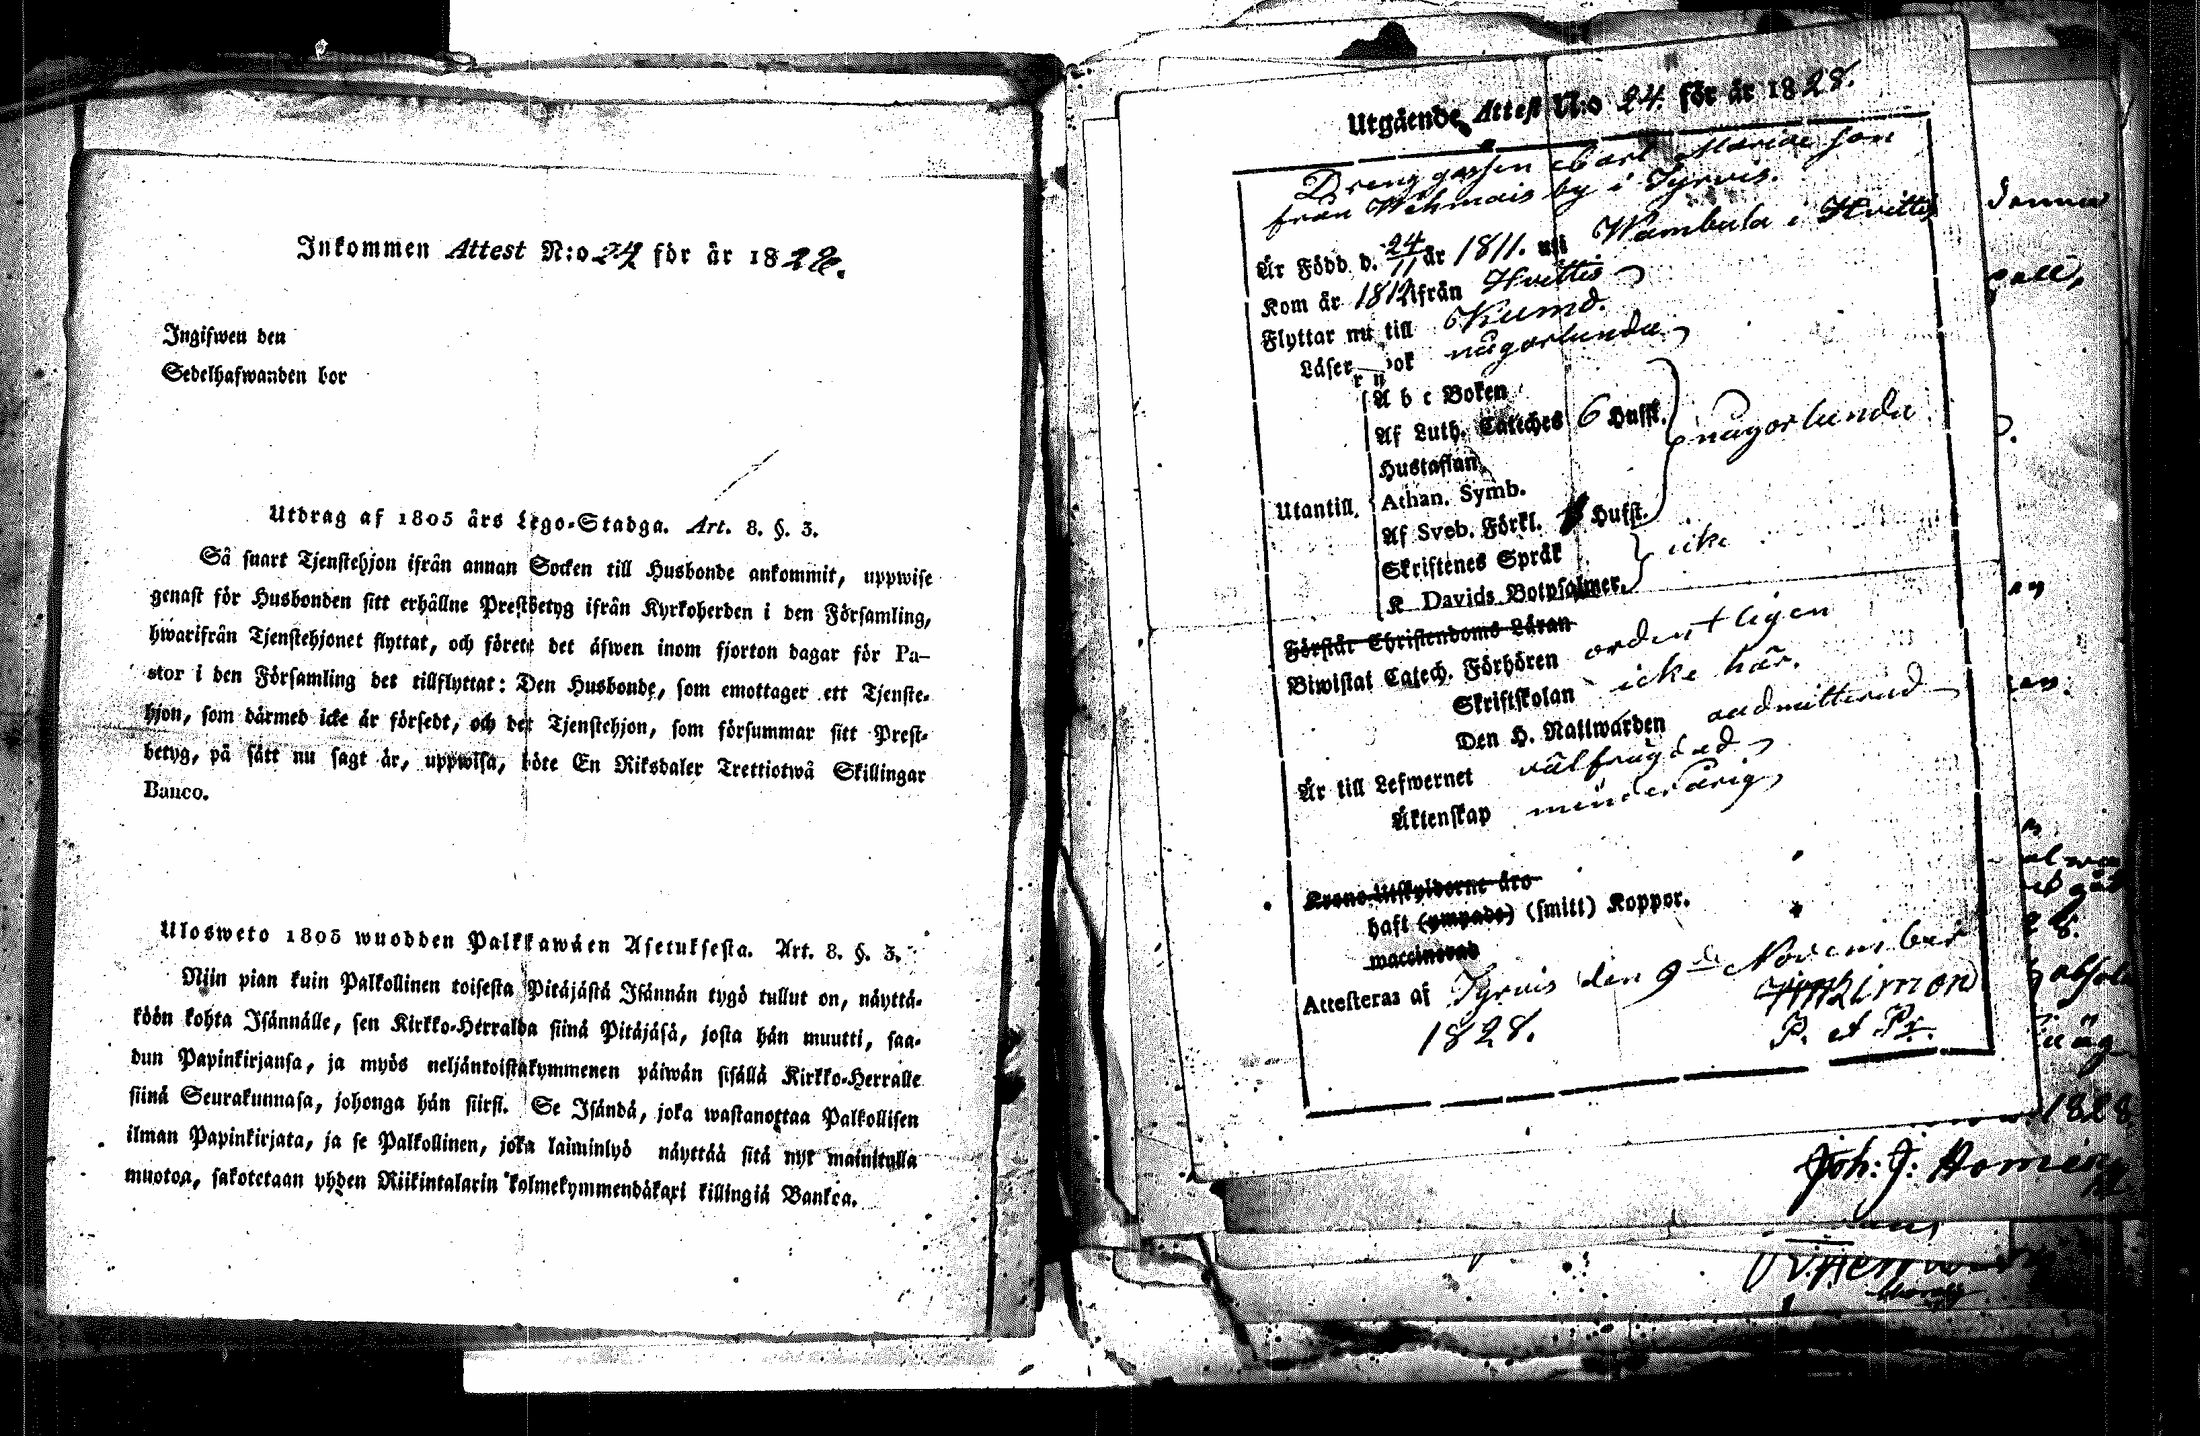 Inkommen Attest N:o 24 för år 1828.
Ingifwen den
Sedelhafwanden bor
Utdrag af 1805 års Lego-Stadga. Art. 8. §. 3.
Så snart Tjenstehjon ifrån annan Socken till Husbonde ankommit, uppwise
genast för Husbonden sitt erhållne Prestbetyg ifrån Kyrkoherden i den Församling,
hwarifrån Tjenstehjonet flyttat, och förete det äfwen inom fjorton dagar för Pa-
stor i den Församling det tillflyttat: Den Husbonde, som emottager ett Tjenste-
hjon, som därmed icke är försedt, och det Tjenstehjon, som försummar sitt Prest-
betyg, på sätt nu sagt är, uppwisa, böte En Riksdaler Trettiotwå Skillingar
Banco.
Ulosweto 1805 wuodden Palkkawäen Asetuksesta. Art. 8. §. 3.
Niin pian kuin Palkollinen toisesta Pitäjästä Isännän tygö tullut on, näyttä-
köön kohta Isännälle, sen Kirkko-Herralda siinä Pitäjäsä, josta hän muutti, saa-
dun Papinkirjansa, ja myös neljäntoistakymmenen päiwän sisällä Kirkko-Herralle
siinä Seurakunnasa, johonga hän siirsi. Se Isändä, joka wastanottaa Palkollisen
ilman Papinkirjata, ja se Palkollinen, joka laiminlyö näyttää sitä nyt mainitulla
muotoa, sakotetaan yhden Riikintalarin kolmekymmendäkaxi killingiä Bankca.
Utgående Attest N:o 24. för år 1828.
Drenggossen Carl Mariae son
från Wehmais by i Tyrvis.
Är Född d. 24/11 år 1811. uti Wambula i Hvittis
Kom år 1812 ifrån Hvittis
Flyttar nu till Kumo.
Läser bok någorlunda
A b c Boken
Af Luth. Catéches 6 Hufst. någorlunda
Hustaflan
Utantill, Athan. Symb.
Af Sveb. Förkl. Hufst.
Skriftenes Språk icke
K Davids Botpsalmer.
Förstår Christendoms Läran
Biwistat Catech. Förhören ordentligen
Skriftskolan icke här.
Den H. Nattwarden oadmitterad
Är till Lefwernet välfrägdad
Äktenskap minderårig
Krono Utskylderne äro
haft (ympade) (smitt) Koppor.
waccinerad
Attesteras af Tyrvis den 9de November
1828.
P. et Pr.
denna
1828.
Joh: J: